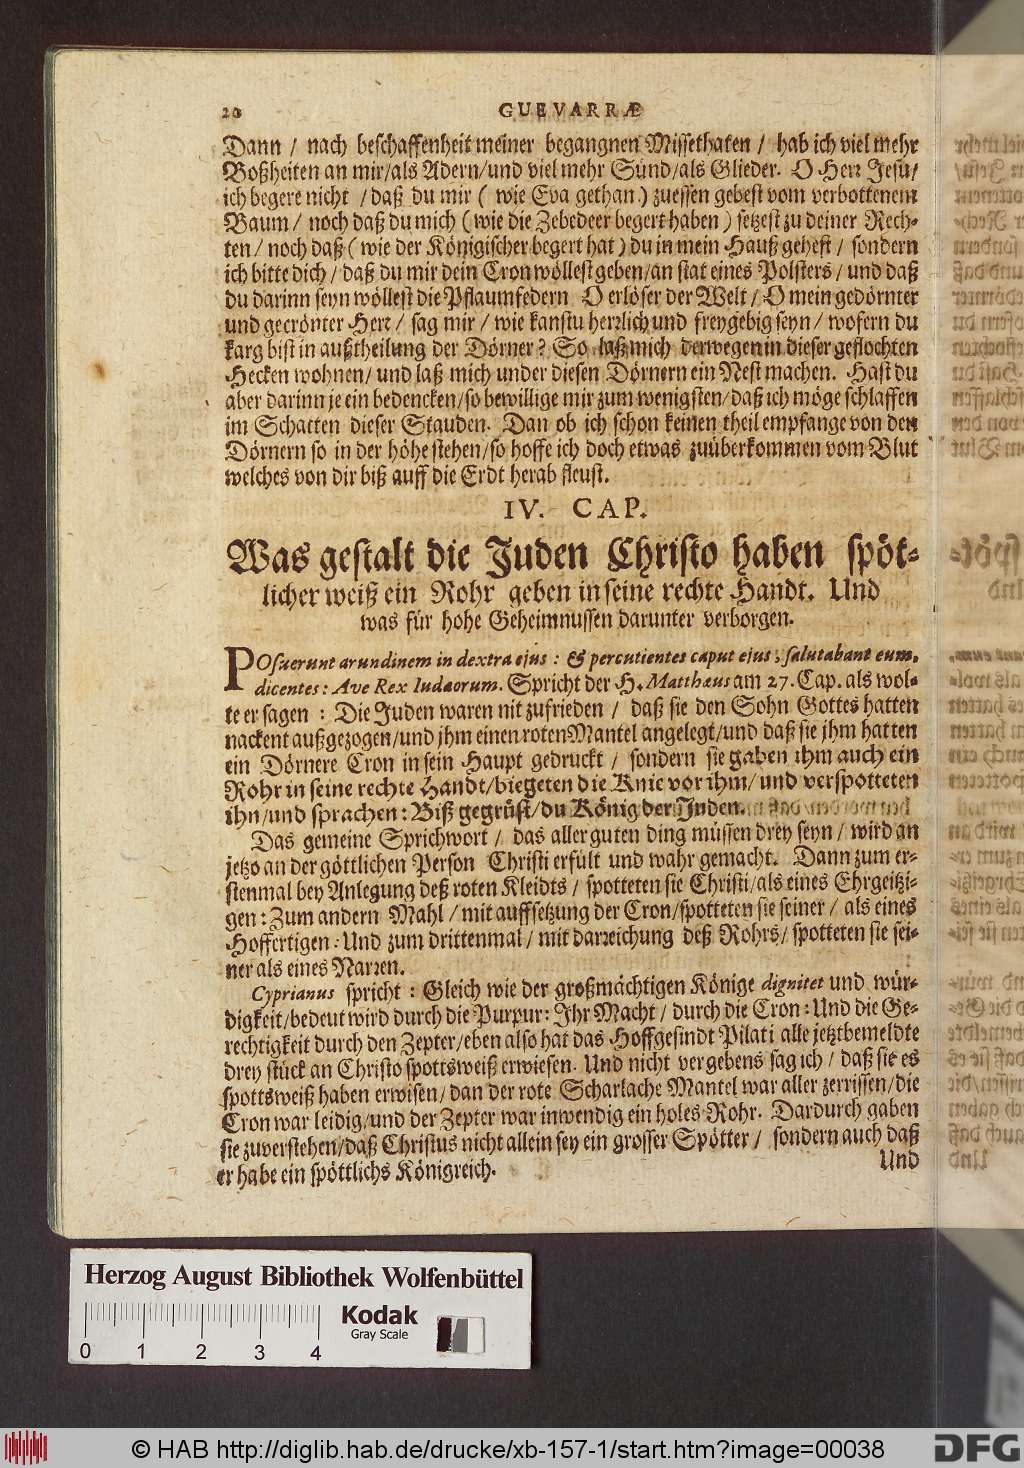 20 GUEVARRÆ
Dann / nach beschaffenheit meiner begangnen Missethaten / hab ich viel mehr
Boßheiten an mir/als Adern/und viel mehr Sünd/als Glieder. O Herr Jesu/
ich begere nicht / daß du mir ( wie Eva gethan ) zuessen gebest vom verbottenem
Baum / noch daß du mich ( wie die Zebedeer begert haben ) setzest zu deiner Rech-
ten / noch daß ( wie der Königischer begert hat ) du in mein Hauß gehest / sondern
ich bitte dich / daß du mir dein Cron wöllest geben/an stat eines Polsters / und daß
du darinn seyn wöllest die Pflaumfedern O erlöser der Welt / O mein gedörnter
und gecrönter Herr / sag mir / wie kanstu herzlich und freygebig seyn / wofern du
karg bist in außtheilung der Dörner? So laß mich derwegen in dieser geflochten
Hecken wohnen/ und laß mich under diesen Dörnern ein Nest machen. Hast du
aber darinn je ein bedencken/so bewillige mir zum wenigsten/daß ich möge schlaffen
im Schatten dieser Stauden. Dan ob ich schon keinen theil empfange von den
Dörnern so in der höhe stehen/so hoffe ich doch etwas zuüberkommen vom Blut
welches von dir biß auff die Erdt herab fleust.
IV. CAP.
Was gestalt die Juden Christo haben spöt-
licher weiß ein Rohr geben in seine rechte Handt. Und
was für hohe Geheimnussen darunter verborgen.
POsuerunt arundinem in dextra ejus : & percutientes caput ejus, salutabant eum,
dicentes: Ave Rex Iudaorum. Spricht der H. Matthæus am 27. Cap. als wol-
te er sagen : Die Juden waren nit zufrieden / daß sie den Sohn Gottes hatten
nackent außgezogen/und jhm einen roten Mantel angelegt/und daß sie jhm hatten
ein Dörnere Cron in sein Haupt gedruckt / sondern sie gaben ihm auch ein
Rohr in seine rechte Handt/biegeten die Knie vor ihm/ und verspotteten
ihn/und sprachen: Biß gegrüst/du König der Juden.
Das gemeine Sprichwort / das aller guten ding müssen drey seyn / wird an
jetzo an der göttlichen Person Christi erfült und wahr gemacht. Dann zum er-
stenmal bey Anlegung deß roten Kleidts / spotteten sie Christi/als eines Ehrgeitzi-
gen: Zum andern Mahl / mit auffsetzung der Cron/spotteten sie seiner / als eines
Hoffertigen: Und zum drittenmal / mit darreichung deß Rohrs/ spotteten sie sei-
ner als eines Narren.
Cyprianus spricht : Gleich wie der großmächtigen Könige dignitet und wür-
digkeit/bedeut wird durch die Purpur: Ihr Macht / durch die Cron: Und die Ge-
rechtigkeit durch den Zepter/eben also hat das Hoffgesindt Pilati alle jetztbemeldte
drey stück an Christo spottsweiß erwiesen. Und nicht vergebens sag ich / daß sie es
spottsweiß haben erwisen/ dan der rote Scharlache Mantel war aller zerrissen/die
Cron war leidig/und der Zepter war inwendig ein holes Rohr. Dardurch gaben
sie zuverstehen/daß Christus nicht allein sey ein grosser Spötter / sondern auch daß
er habe ein spöttlichs Königreich.
Und
Herzog August Bibliothek Wolfenbüttel
Kodak
Gray Scale
0 1 2 3 4
© HAB http://diglib.hab.de/drucke/xb-157-1/start.htm?image=00038
DFG